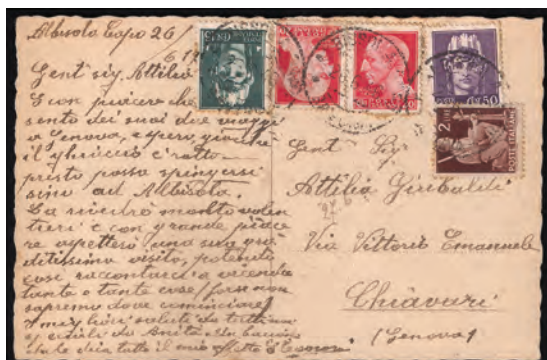 Albisola Capo 26/
Gent sig. Attilio
È con piacere che
sento dei suoi due viaggi
a Genova, e spero, giacchè
il ghiaccio è rotto
presto possa spingersi
sino ad Albisola.
La rivedrò molto volen
tieri e con grande piace
re aspetterò una sua gra
ditissima visita, potendo
così raccontarci a vicenda
tante e tante cose/forse non
sapremo dove cominciare/
saluti da tutti
da Anita
tutto il mio affetto
Gent Sig
Attilio Garibaldi
Via Vittorio Emanuele
Chiavari
(Genova)
2 LIRE
POSTE ITALIANE